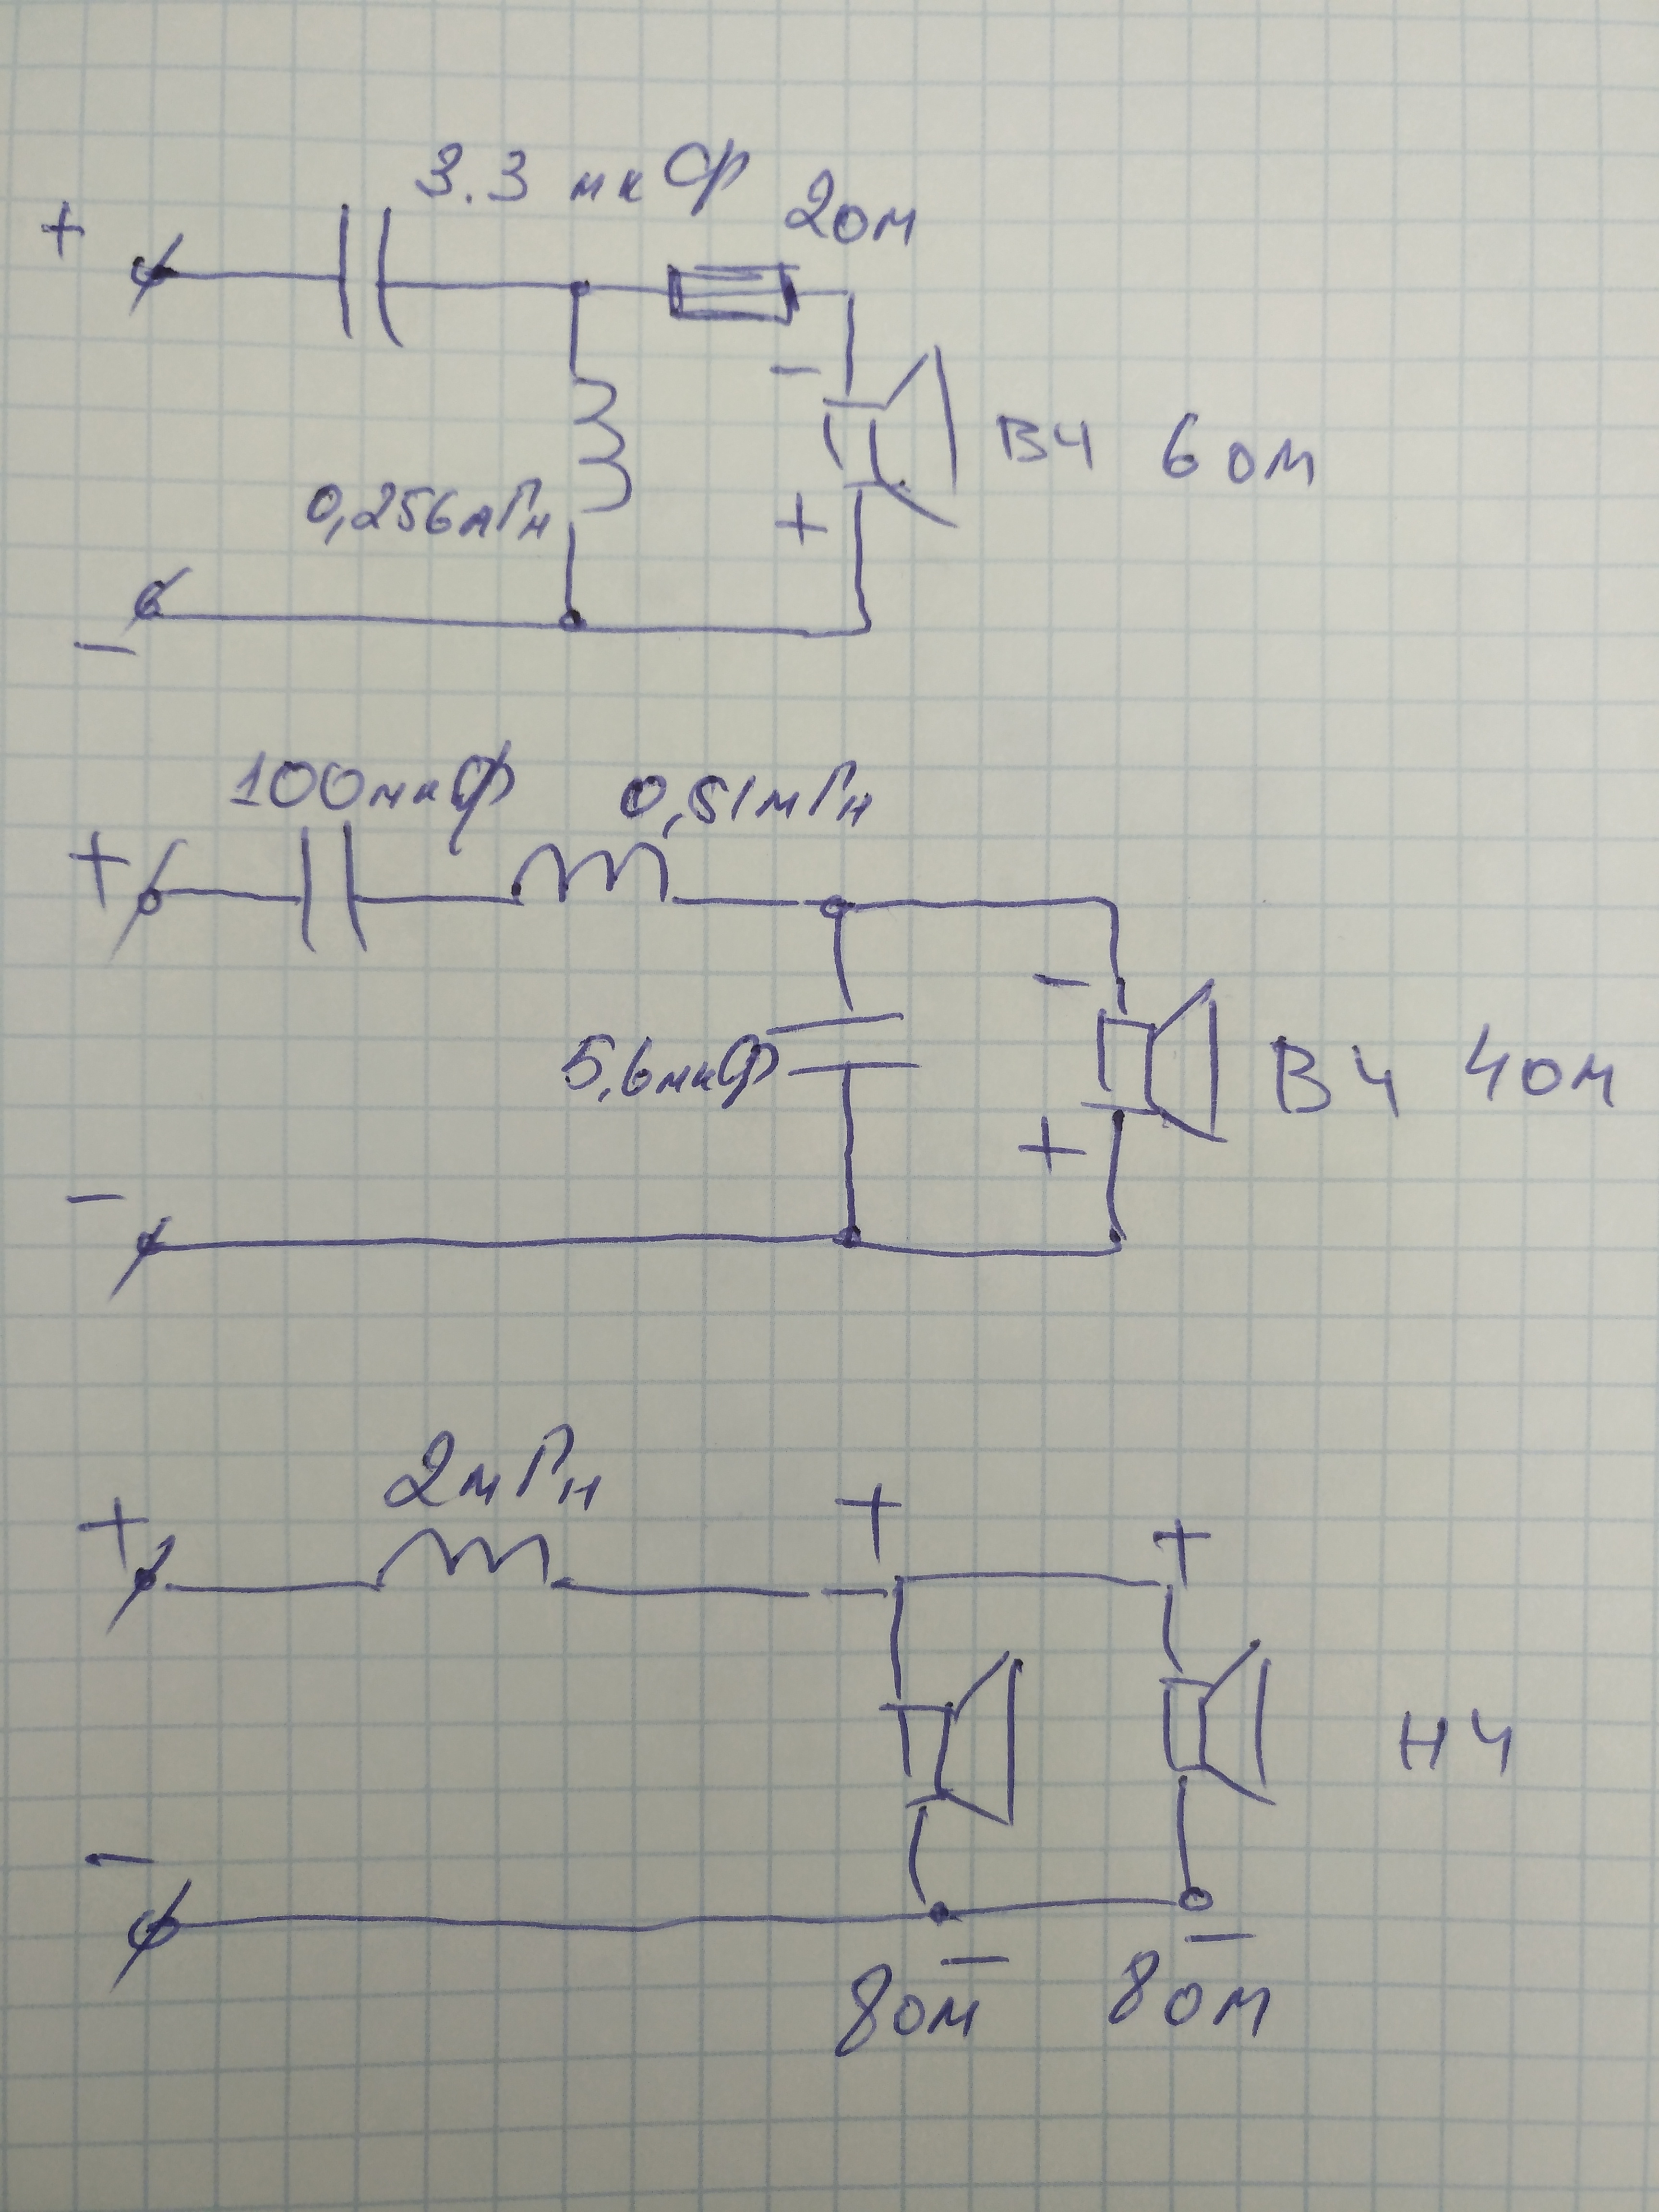 3.3 мкФ 2ом
+
-
ВЧ 6 ом
0,256мГн
+
-
100мкФ 0,51мГн
+
-
5,6мкФ
ВЧ 4ом
+
-
2мГн
+
+
+
НЧ
-
-
-
8ом 8ом